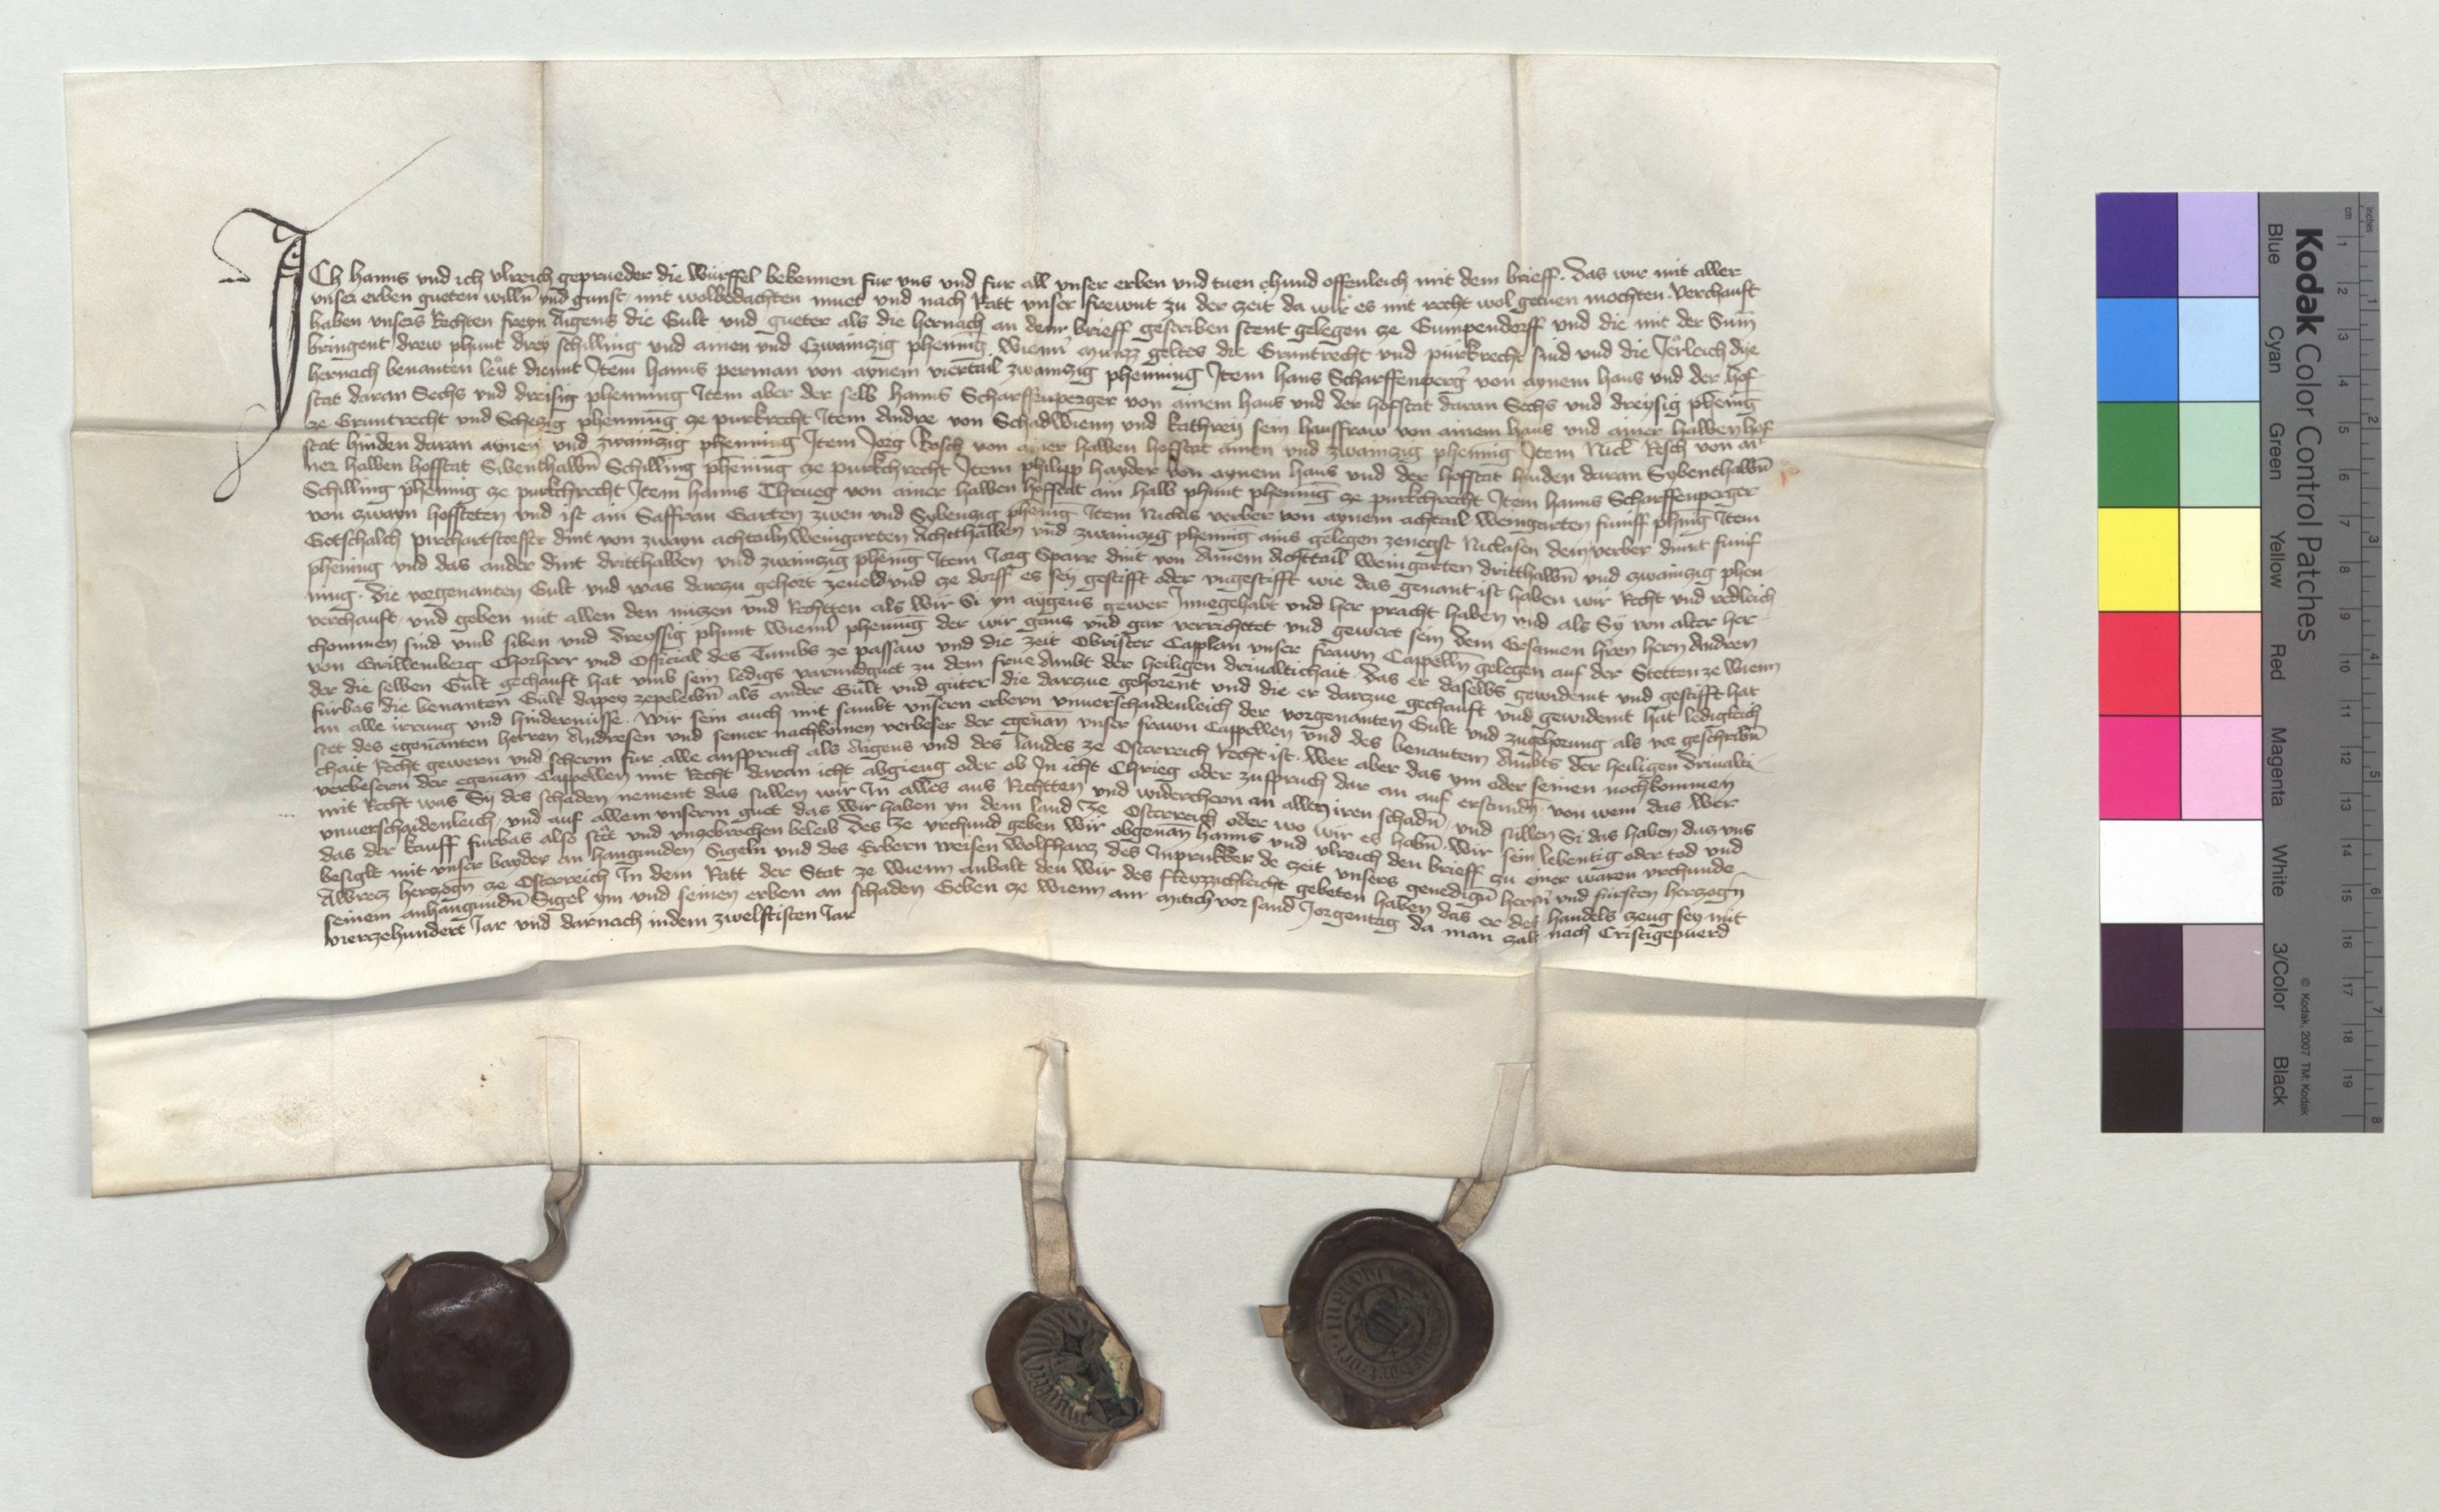 ICh hanns vnd ich vlreich geprueder die Würffel bekennen für vns vnd für all vnser erben vnd tuen chund offenleich mit dem brieff. Das wir mit aller
vnser erben gueten willn vnd gunst mit wolbedachten muet vnd nach Ratt vnser frewnt zu der zeit da wir es mit recht wol getuen mochten. Verchauft
haben vnsers Rechten freyn Aigens die Gult vnd gueter als die hernach an dem brieff gescriben stent gelegen ze Gumpendorff vnd die mit der Sum̄
bringent drew phunt drey schilling vnd ainen vnd Czwainczig phening wienn̄ muncz geltes die Gruntrecht vnd purkrecht sind vnd die Jerleich dye
hernach benanten leut diennt Item hanns perman von aynem viertail zwainczig phenning Item hans Scharffenperḡ von aynem haus vnd der hof
stat daran Sechs vnd dreisig phenning Item aber der selb hanns Scharffenperger von ainem haus vnd der hofstat daran Sechs vnd dreysig phening
ze Gruntrecht vnd Sechczig phenning ze purkrecht Item Andre von Schadwienn vnd kathrey sein hausfraw von ainem haus vnd ainer halben hof
stat hinden daran aynen vnd zwainczig phenning Item Jorg Resch von ainer halben hofstat ainen vnd zwainczig phening Item Nicl Resch von ai
ner halben hofstat Sibenthalbn̄ Schilling phening ze purkchrecht Item philipp hayder von aynem haus vnd der hofstat hinden daran Sybenthalbn̄
Schilling phening ze purkchrecht Item hanns Chrueg von ainer halben hofstat ain halb phunt phening ze purkchrecht Item hanns Scharffenperger
von zwayn hofsteten vnd ist ain Saffran Garten zwen vnd Sybenczig phenig Item Niclas verber von aynem achtail weingarten funff phnig Item
Gotschalch purchartstorffer dint von zwayn achtailn weingarten Achthalben vnd zwainczig phening ains gelegen zenegst Niclasen dem verber dinnt funf
phening vnd das ander dint dritthalben vnd zwainczig phenig Item Jorg Sparr dint von Ainem Achttail weingarten dritthalbn̄ vnd zwainczig phen
ning. Die vorgenanten Gult vnd was darzu gehort zeueld vnd ze dorff es sey gestifft oder vngestifft wie das genant ist haben wir Recht vnd redleich
verchauft vnd geben mit allen den nuczen vnd Rechtten als wir Si yn aygens gewer Innegehabt vnd her pracht haben vnd als Sy von alter her
chommen sind vmb siben vnd dreyssig phunt wienn̄ phening der wir gancz vnd gar verrichtet vnd gewert sein dem Ersamen hren hern Andren
von Grillemberg Chorherr vnd Official des Tumbs ze passaw vnd die zeit Obrister Capplan vnser frawn Cappelln̄ gelegen auf der Stetten ze wienn
der die selben Gult gechauft hat vmb sein ledigs varundguet zu dem frue Ambt der heiligen driualtichait. Das er daselbs gewidemt vnd gestifft hat
fürbas die benanten Gult dapey zepeleibn̄ als ander Gult vnd güter die darzue gehorent vnd die er darzue gechauft vnd gewidemt hat ledigkleich
an alle irrung vnd hindernüsse. Wir sein auch mit sambt vnsern erbern vnuerschaidenleich der vorgenanten Gult vnd zugehorung als vor geschribn̄
stet des egenanten herren Andresen vnd seiner nachkomen verbeser der egenan̄ vnser frawn Cappellen vnd des benantem Ambts der heiligen driualti
chait Recht gewern vnd scherm für alle anspruch als Aigens vnd des landes ze Osterreich Recht ist. Wer aber das ym oder seinen nochkommen
verbesern der egenan̄ Cappellen mit Recht daran icht abgieng oder ob In icht Chrieg oder zuspruch dar an auf erstundn̄ von wem das wer
mit Recht was Sy des schaden nement das sullen wir In alles aus Richtten vnd widerchern an allen iren schadn̄ vnd sullen Si das haben dacz vns
vnuerschaidenleich vnd auf allem vnserm guet das wir haben yn dem land ze Osterreich oder wo wir es habn̄. Wir sein lebentig oder tod vnd
das der kauff furbas also stet vnd vngebrochen beleib des ze vrchund geben wir obgenan̄ hanns vnd vlreich den brieff zu einer waren vrchunde
besiglt mit vnser bayder an hangunden Sigeln vnd des Erbern weisen wolfharcz des Inprukker de zeit vnsers genedign̄ herrn̄ vnd fürsten herczogn̄
Albrecz herczogn̄ ze Osterreich In dem Ratt der Stat ze wienn anbalt den wir des fleyzzichleicht gebeten haben das er des handels zeug sey mit
seinem anhangundn̄ Sigel ym vnd seinen erben an schaden Geben ze wienn am mitich vor sand Jorgentag da man zalt nach Cristigepuerd
vierczehundert Jar vnd darnach indem zwelftisten Jar
Kodak Color Control Patches
© Kodak, 2007 TM: Kodak
Blue Cyan Green Yellow Red Magenta White 3/Color Black
inches 1 2 3 4 5 6 7 8
cm 1 2 3 4 5 6 7 8 9 10 11 12 13 14 15 16 17 18 19